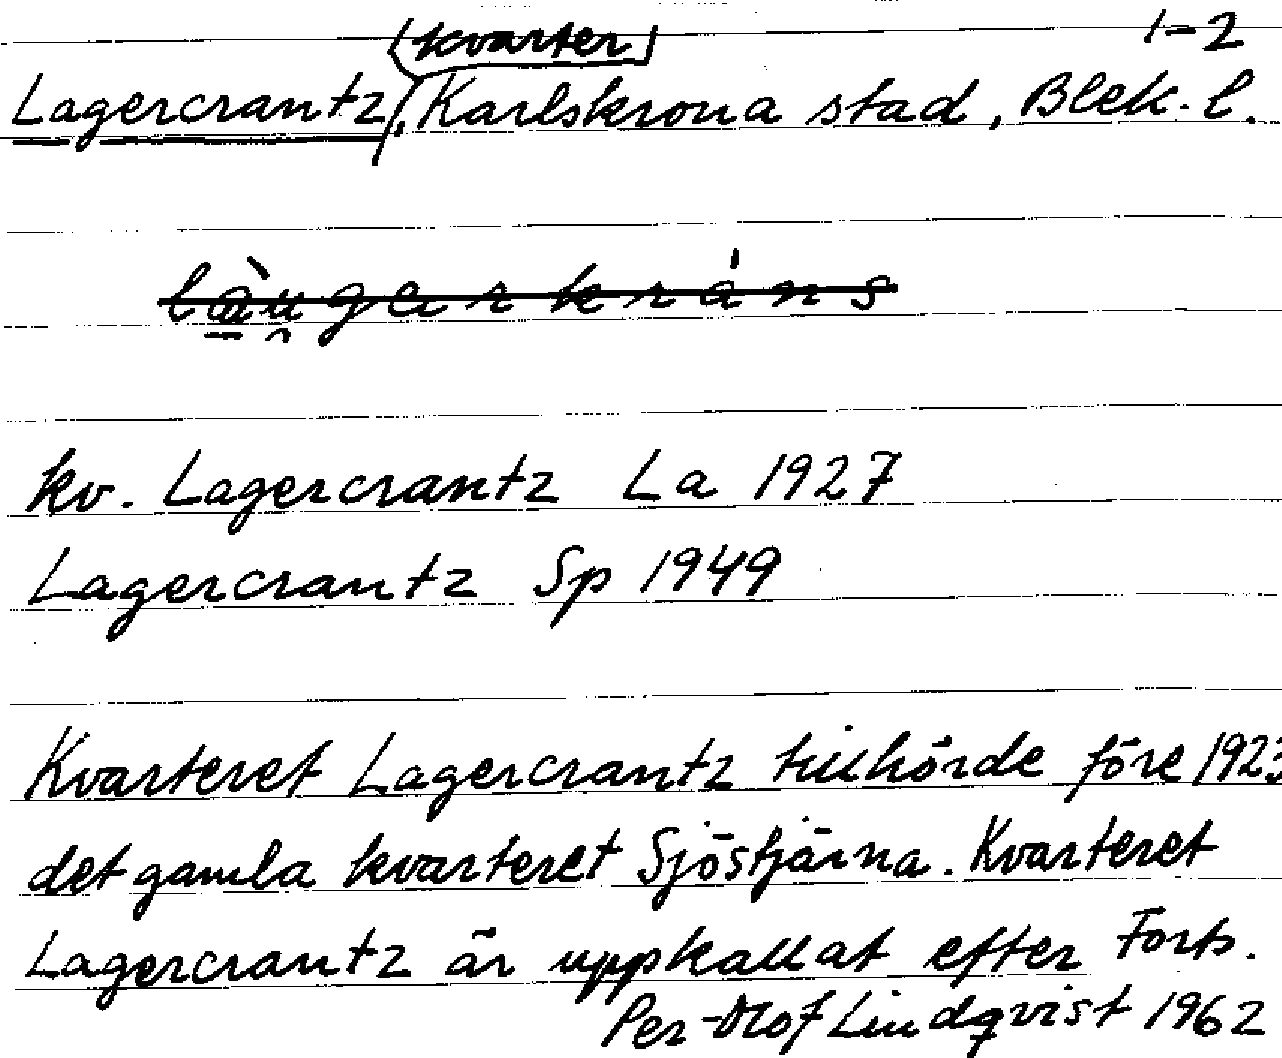 1-2
(kvarter)
Lagercrantz, Karlskrona stad, Blek. l.
kv. Lagercrantz La 1927
Lagercrantz Sp 1949
Kvarteret Lagercrantz tillhörde före 1923
det gamla kvarteret Sjöstjärna. Kvarteret
Lagercrantz är uppkallat efter Forts.
Per-Olof Lindqvist 1962